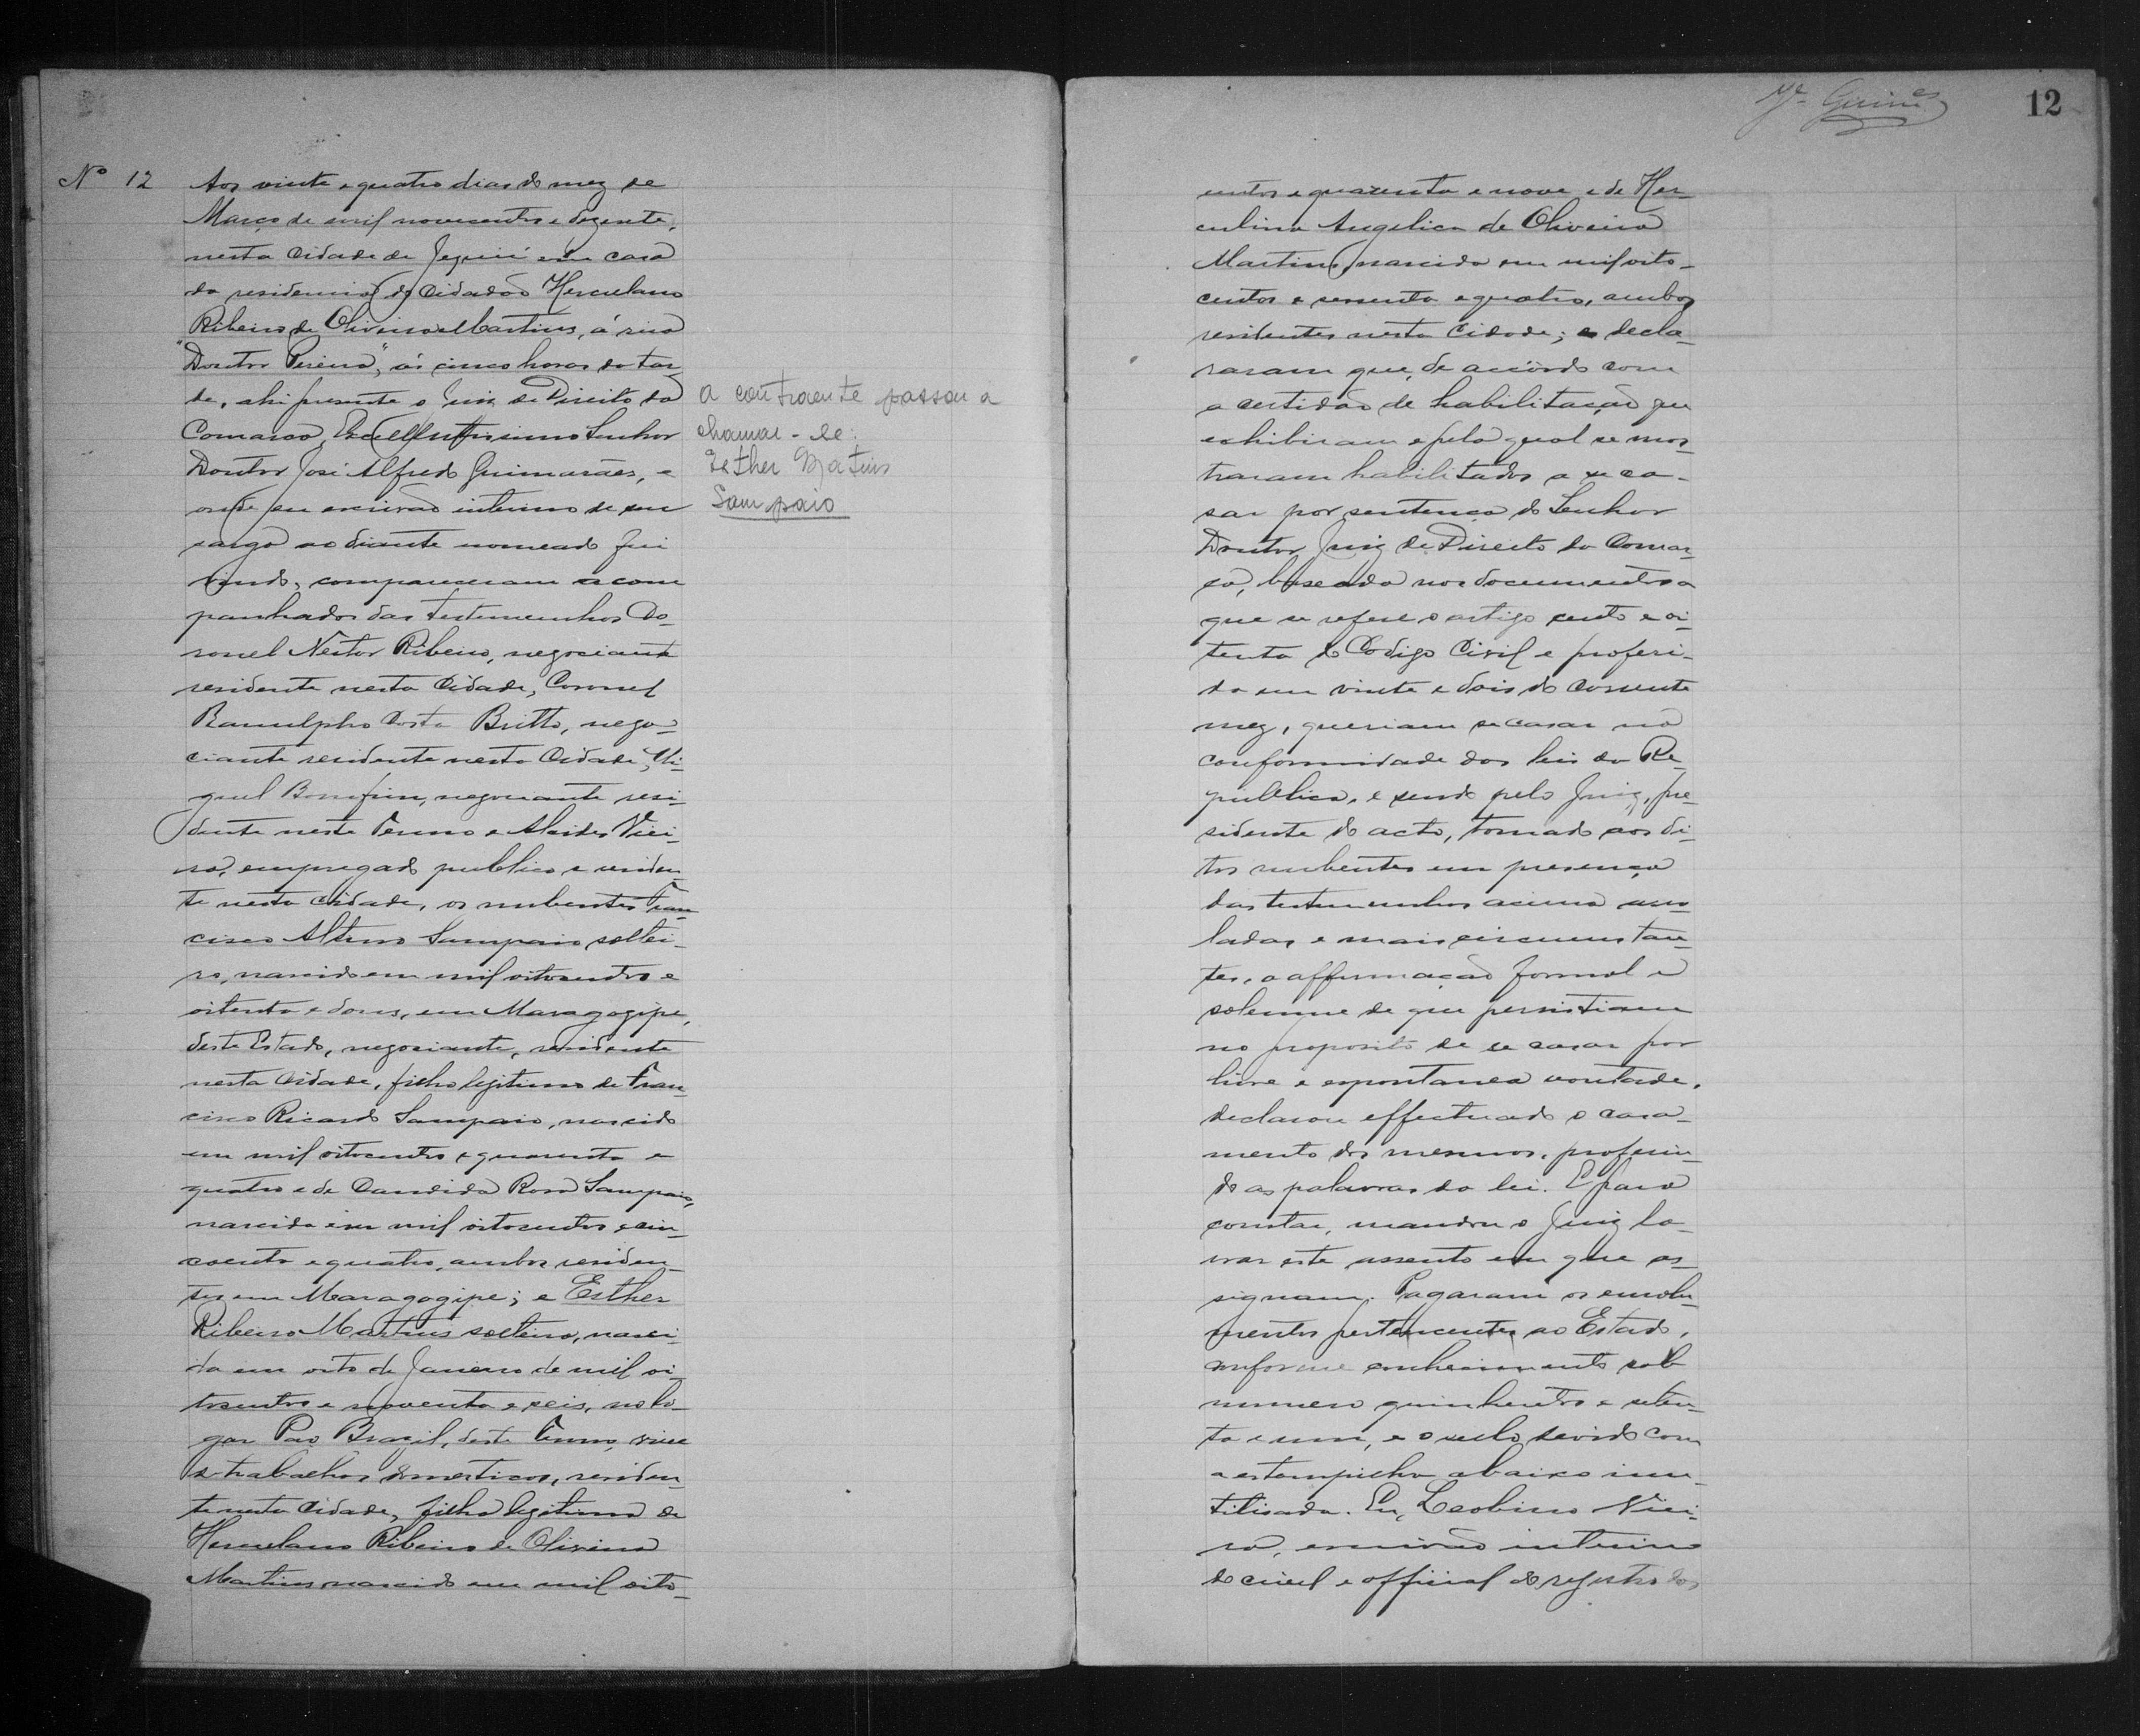 Nº 12
Aos vinte e quatro dias do mez de
Março de mil novecentos e dezesete,
nesta Cidade de Jequié em casa
da residencia do Cidadão Herculano
Ribeiro de Oliveira Martins, á rua
"Doutor Pereira", ás cinco horas da tar-
de, ahi presente o Juiz de Direito da
Comarca, Excellentissimo Senhor
Doutor José Alfredo Guimarães, e
onde eu escrivão interino de seu
cargo ao diante nomeado fui
vindo, compareceram acom
panhados das testemunhas Co-
ronel Nestor Ribeiro, negociante
residente nesta Cidade, Coronel
Ramulpho Costa Britto, nego-
ciante residente nesta Cidade, Mi-
guel Bomfim, negociante resi-
dente neste Termo e Alcides Viei-
ra, empregado publico e residen-
te nesta Cidade, os nubentes Fran-
cisco Altino Sampaio, soltei-
ro, nascido em mil oitocentos e
oitenta e dous, em Maragogipe,
deste Estado, negociante, residente
nesta Cidade, filho legitimo de Fran-
cisco Ricardo Sampaio, nascido
em mil oitocentos e quarenta e
quatro e de Candida Rosa Sampaio,
nascida em mil oitocentos e cin-
coenta e quatro, ambos residen-
tes em Maragogipe; e Esther
Ribeiro Martins solteira, nasci-
da em oito de Janeiro de mil oi-
tocentos e noventa e seis, no lo-
gar Pao Brazil, deste Termo, vive
de trabalhos domesticos, residen-
te nesta Cidade, filha legitima de
Herculano Ribeiro de Oliveira
Martins nascido em mil oito-
a contraente passou a
chamar-se:
Esther Matins
Sampaio
12
centos e quarenta e nove e de Her-
culina Angelica de Oliveira
Martins, nascida em mil oito-
centos e sessenta e quatro, ambos
residentes nesta Cidade; e decla-
raram que, de accôrdo com
a certidão de habilitação que
exhibiram e pela qual se mos-
traram habilitados a se ca-
sar por sentença do Senhor
Doutor Juiz de Direito da Comar-
ca, baseada nos documentos a
que se refere o artigo cento e oi-
tenta do Codigo Civil e proferi-
da em vinte e dois do corrente
mez, queriam se casar na
conformidade das leis da Re-
publica, e sendo pelo Juiz, pre-
sidente do acto, tomado aos di-
tos nubentes em presença
das testemunhas acima arro-
ladas e mais circumstan-
tes, a affirmação formal e
solemne de que persistiam
no proposito de se casar por
livre e espontanea vontade,
declarou effectuado o casa-
mento dos mesmos, proferin-
do as palavras da lei. E para
constar, mandou o Juiz la-
vrar este assento em que as-
signam. Pagaram os emolu-
mentos pertencentes ao Estado,
conforme conhecimento sob
numero quinhentos e seten-
ta e um, e o sello devido com
a estampilha abaixo inu-
tilisada. Eu, Leobino Viei-
ra, escrivão interino
do civel e official do registro dos